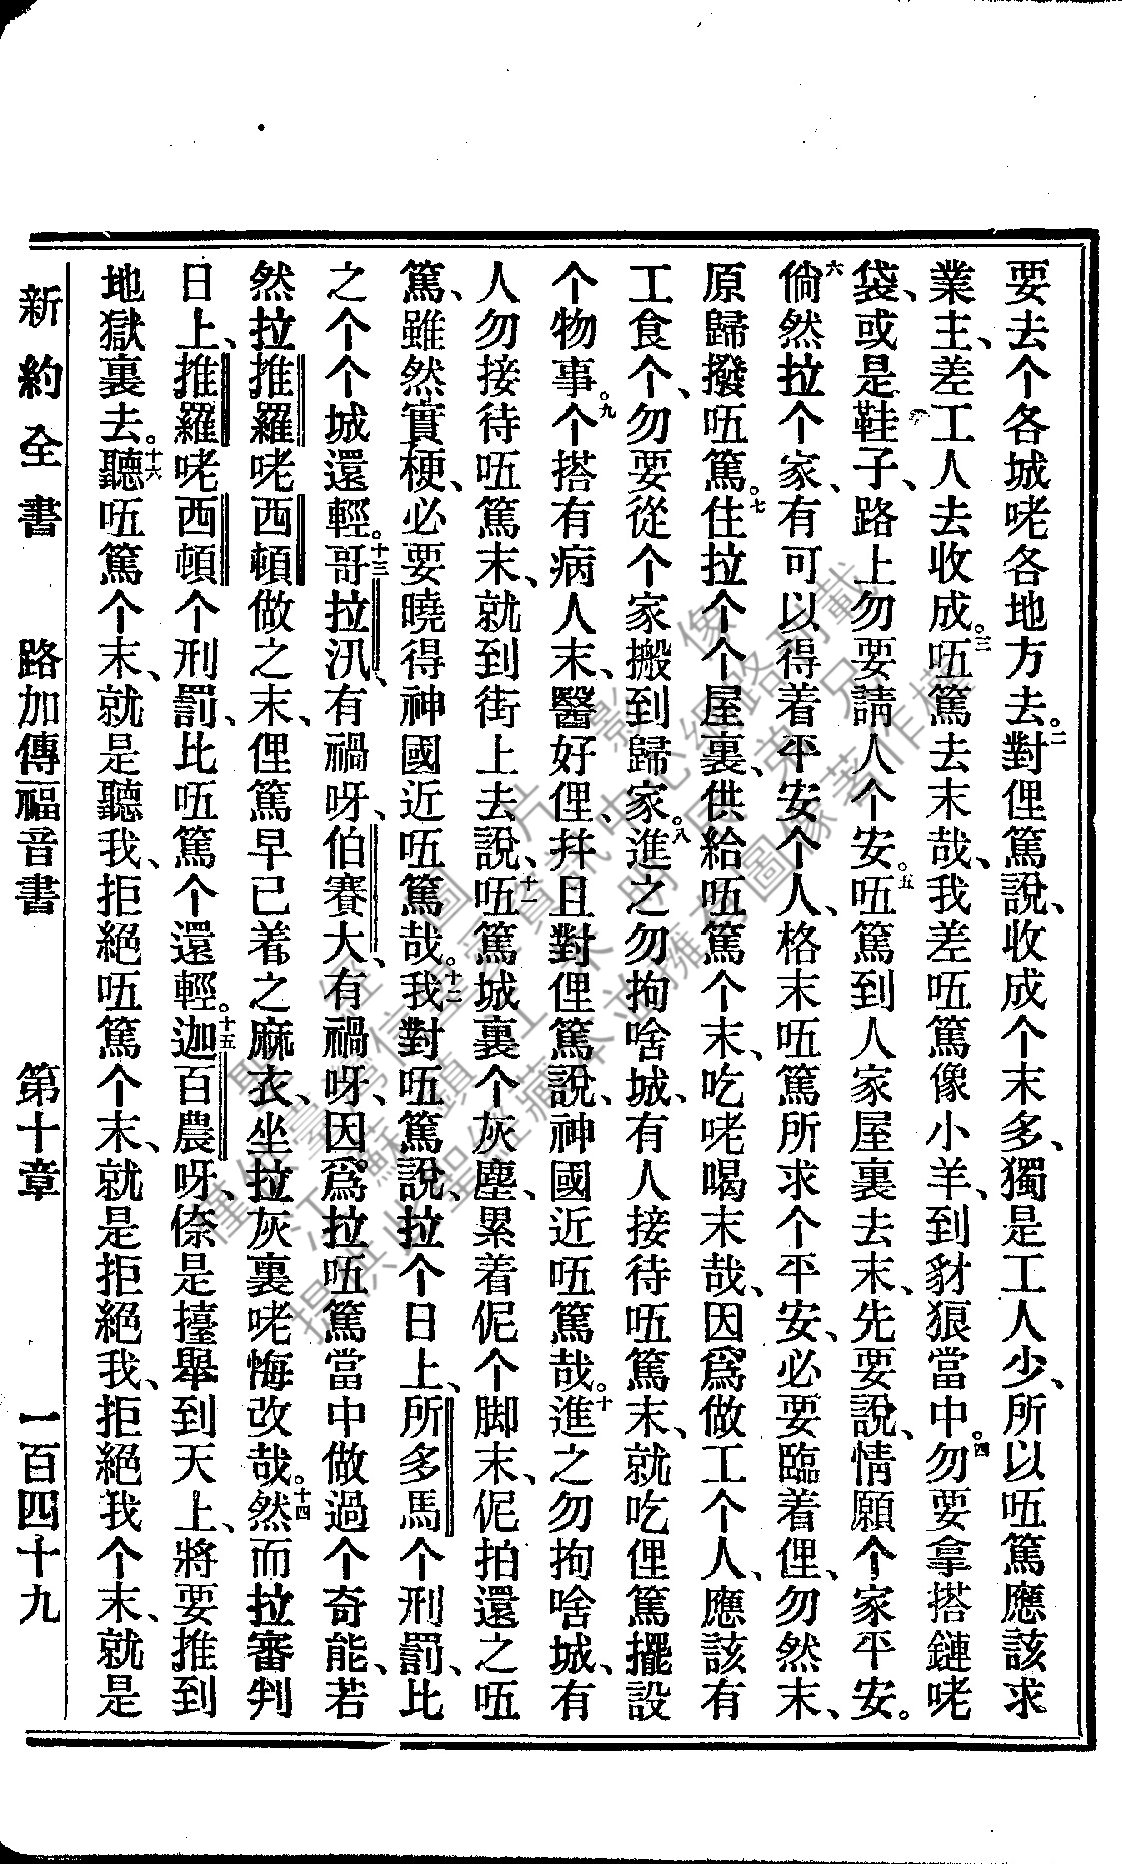 要去个各城咾各地方去。二對俚篤說、收成个末多、獨是工人少、所以㕶篤應該求
業主、差工人去收成。三㕶篤去末哉、我差㕶篤像小羊、到豺狼當中。四勿要拿搭鏈咾
袋、或是鞋子、路上勿要請人个安。五㕶篤到人家屋裏去末、先要說、情願个家平安。
六倘然拉个家、有可以得着平安个人、格末㕶篤所求个平安、必要臨着俚、勿然末、
原歸撥㕶篤。七住拉个个屋裏、供給㕶篤个末、吃咾喝末哉、因爲做工个人、應該有
工食个、勿要從个家搬到歸家。八進之勿拘啥城、有人接待㕶篤末、就吃俚篤擺設
个物事。九个搭有病人末、醫好俚、幷且對俚篤說、神國近㕶篤哉。十進之勿拘啥城、有
人勿接待㕶篤末、就到街上去說、十一㕶篤城裏个灰塵、累着伲个脚末、伲拍還之㕶
篤、雖然實梗、必要曉得神國近㕶篤哉。十二我對㕶篤說、拉个日上、所多馬个刑罰、比
之个个城還輕。十三哥拉汛、有禍呀、伯賽大、有禍呀、因爲拉㕶篤當中做過个奇能、若
然拉推羅咾西頓做之末、俚篤早已着之麻衣、坐拉灰裏咾悔改哉。十四然而拉審判
日上、推羅咾西頓个刑罰、比㕶篤个還輕。十五迦百農呀、倷是擡舉到天上、將要推到
地獄裏去。十六聽㕶篤个末、就是聽我、拒絕㕶篤个末、就是拒絕我、拒絕我个末、就是
新約全書　路加傳福音書　第十章　一百四十九